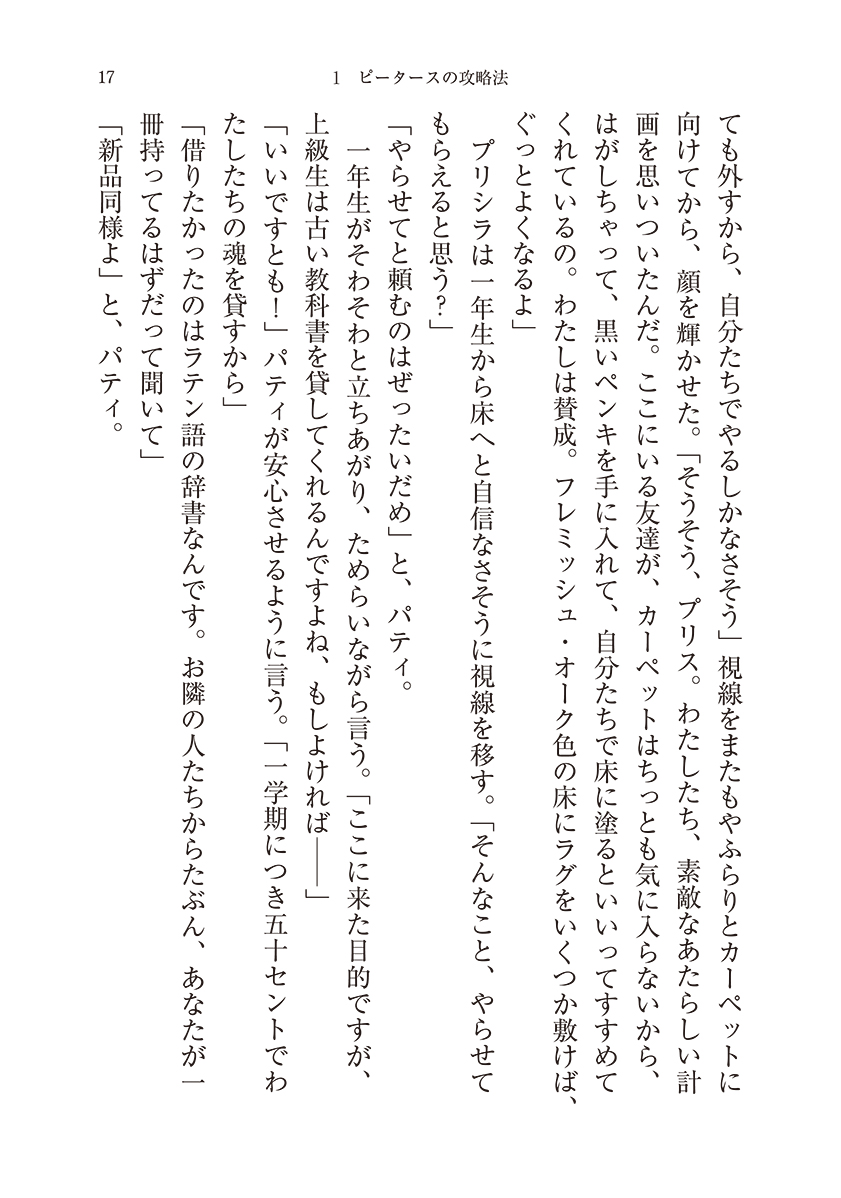 17
1　ピータースの攻略法
ても外すから、自分たちでやるしかなさそう」視線をまたもやふらりとカーペットに
向けてから、顔を輝かせた。「そうそう、プリス。わたしたち、素敵なあたらしい計
画を思いついたんだ。ここにいる友達が、カーペットはちっとも気に入らないから、
はがしちゃって、黒いペンキを手に入れて、自分たちで床に塗るといいってすすめて
くれているの。わたしは賛成。フレミッシュ・オーク色の床にラグをいくつか敷けば、
ぐっとよくなるよ」
　プリシラは一年生から床へと自信なさそうに視線を移す。「そんなこと、やらせて
もらえると思う？」
「やらせてと頼むのはぜったいだめ」と、パティ。
　一年生がそわそわと立ちあがり、ためらいながら言う。「ここに来た目的ですが、
上級生は古い教科書を貸してくれるんですよね、もしよければ――」
「いいですとも！」パティが安心させるように言う。「一学期につき五十セントでわ
たしたちの魂を貸すから」
「借りたかったのはラテン語の辞書なんです。お隣の人たちからたぶん、あなたが一
冊持ってるはずだって聞いて」
「新品同様よ」と、パティ。